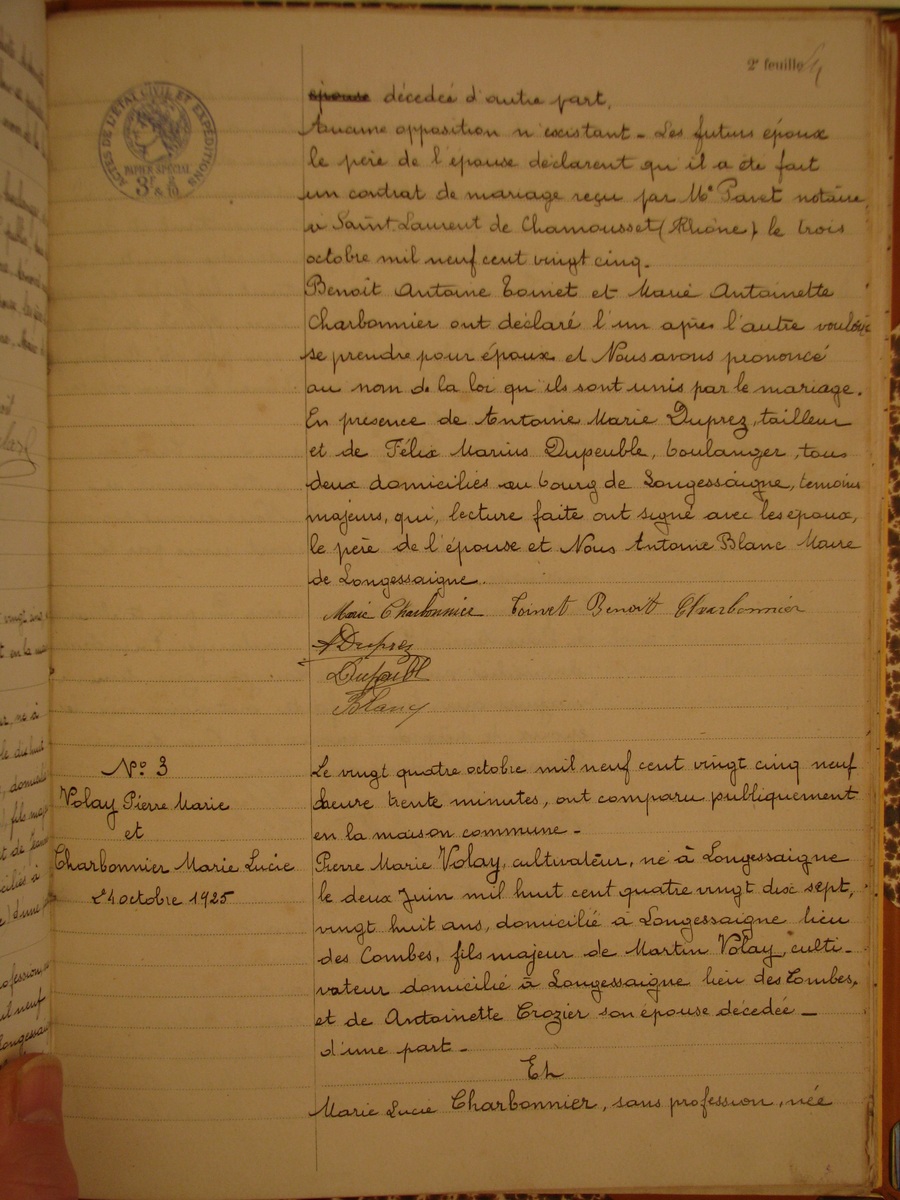 2e feuille
ACTES DE L'ÉTAT CIVIL ET EXPÉDITIONS
PAPIER SPÉCIAL
épouse décedeé d'autre part.
Aucune opposition n'existant - Les futurs époux
le père de l'épouse déclarent qu'il a été fait
un contrat de mariage reçu par Me Paret notaire,
à Saint Laurent de Chamousset (Rhône) le trois
octobre mil neuf cent vingt cinq.
Benoit Antoine Toinet et Marie Antoinette
Charbonnier ont déclaré l'un après l'autre vouloir
se prendre pour époux et Nous avons prononcé
au nom de la loi qu'ils sont unis par le mariage.
En presence de Antoine Marie Duprez, tailleur
et de Félix Marius Dupeuble, boulanger, tous
deux domiciliés au bourg de Longessaigne, temoins
majeurs, qui, lecture faite ont signé avec les epoux,
le père de l'épouse et Nous Antoine Blanc Maire
de Longessaigne.
Marie Charbonnier Toinet Benoit Charbonnier
A Duprez
Blanc
No 3
Volay Pierre Marie
et
Charbonnier Marie Lucie
24 octobre 1925
Le vingt quatre octobre mil neuf cent vingt cinq neuf
heure trente minutes, ont comparu publiquement
en la maison commune -
Pierre Marie Volay, cultivateur, né à Longessaigne
le deux Juin mil huit cent quatre vingt dix sept,
vingt huit ans, domicilié à Longessaigne lieu
des Combes, fils majeur de Martin Volay, culti-
vateur domicilié à Longessaigne lieu des Combes,
et de Antoinette Crozier son épouse décédée -
d'une part -
Et
Marie Lucie Charbonnier, sans profession, née